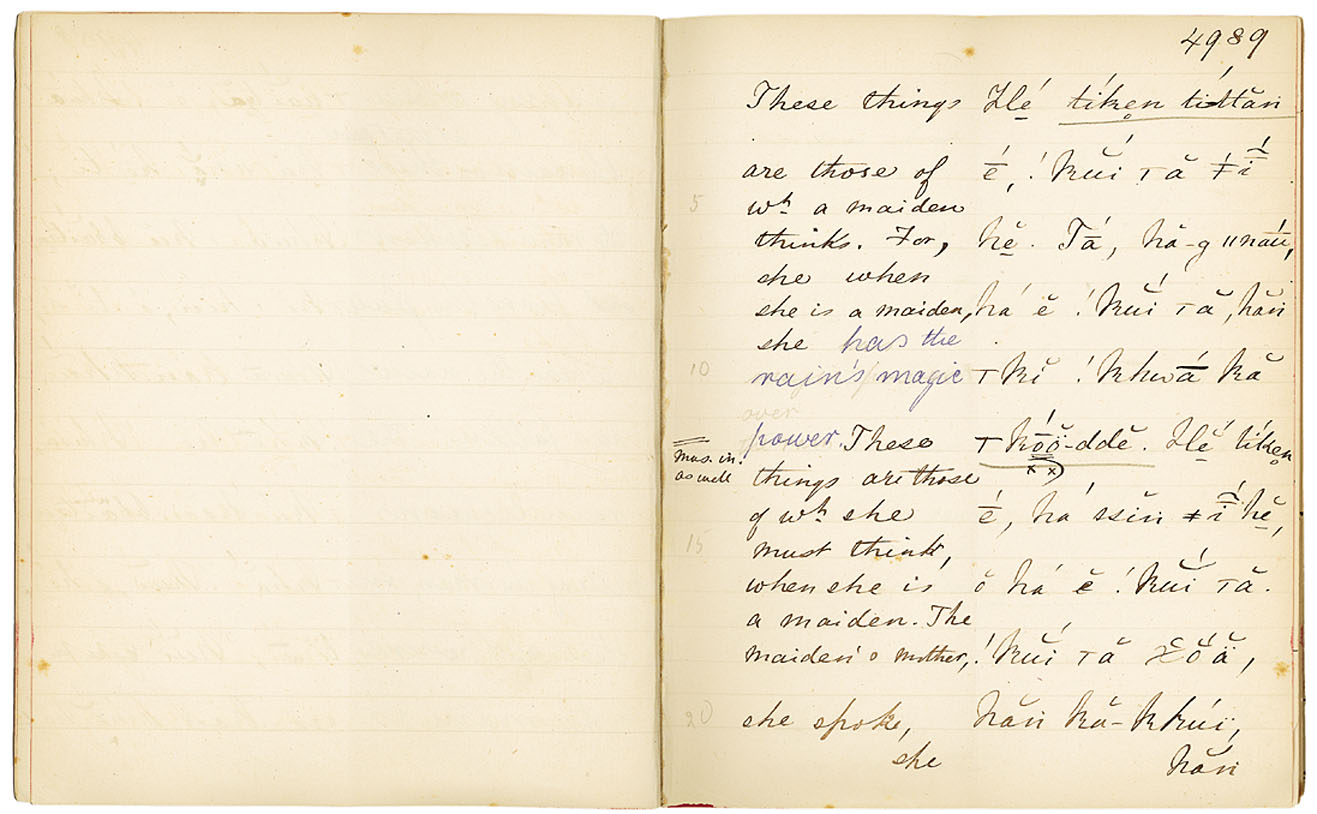 4989
These things Hé̱ tíken̥ títtăn
are those of é̄, !kŭ́i ⊤ă ≠ī́
5 wh. a maiden
thinks. For, hĕ̱. Tā́, hă-g ‖nāú,
she when
she is a maiden, há ĕ !kŭ́i ⊤ă, hăn
she has the
10 rain's magic ⊤kĭ !khwā́ kă
over
power. These ⊤kṓŏ̈-ddĕ. Hĕ̱ tíken̥
mas. in.
as well
things are those
× ×
of wh. she é̄, há ssĭn ≠ī́ hĕ̱,
15 must think,
when she is ŏ há ĕ !kŭ́i ⊤ă.
a maiden. The
maiden's mother, !kŭ́i ⊤ă χŏ́ä̆,
20 she spoke, hăn kă-kkúï,
she hăn